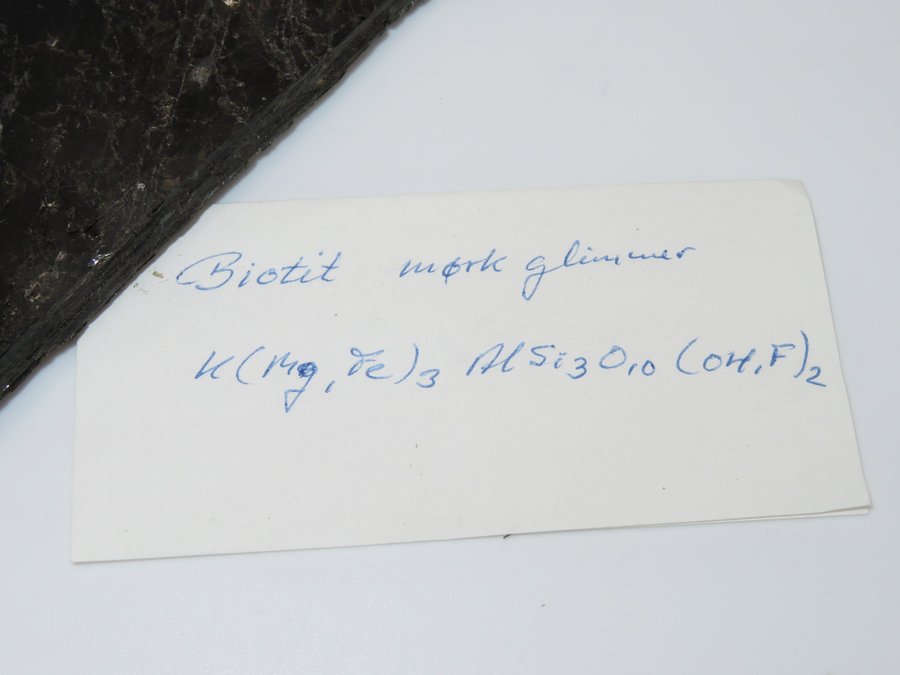 Biotit mørk glimmer
K(Mg,Fe)₃ AlSi₃O₁₀ (OH,F)₂